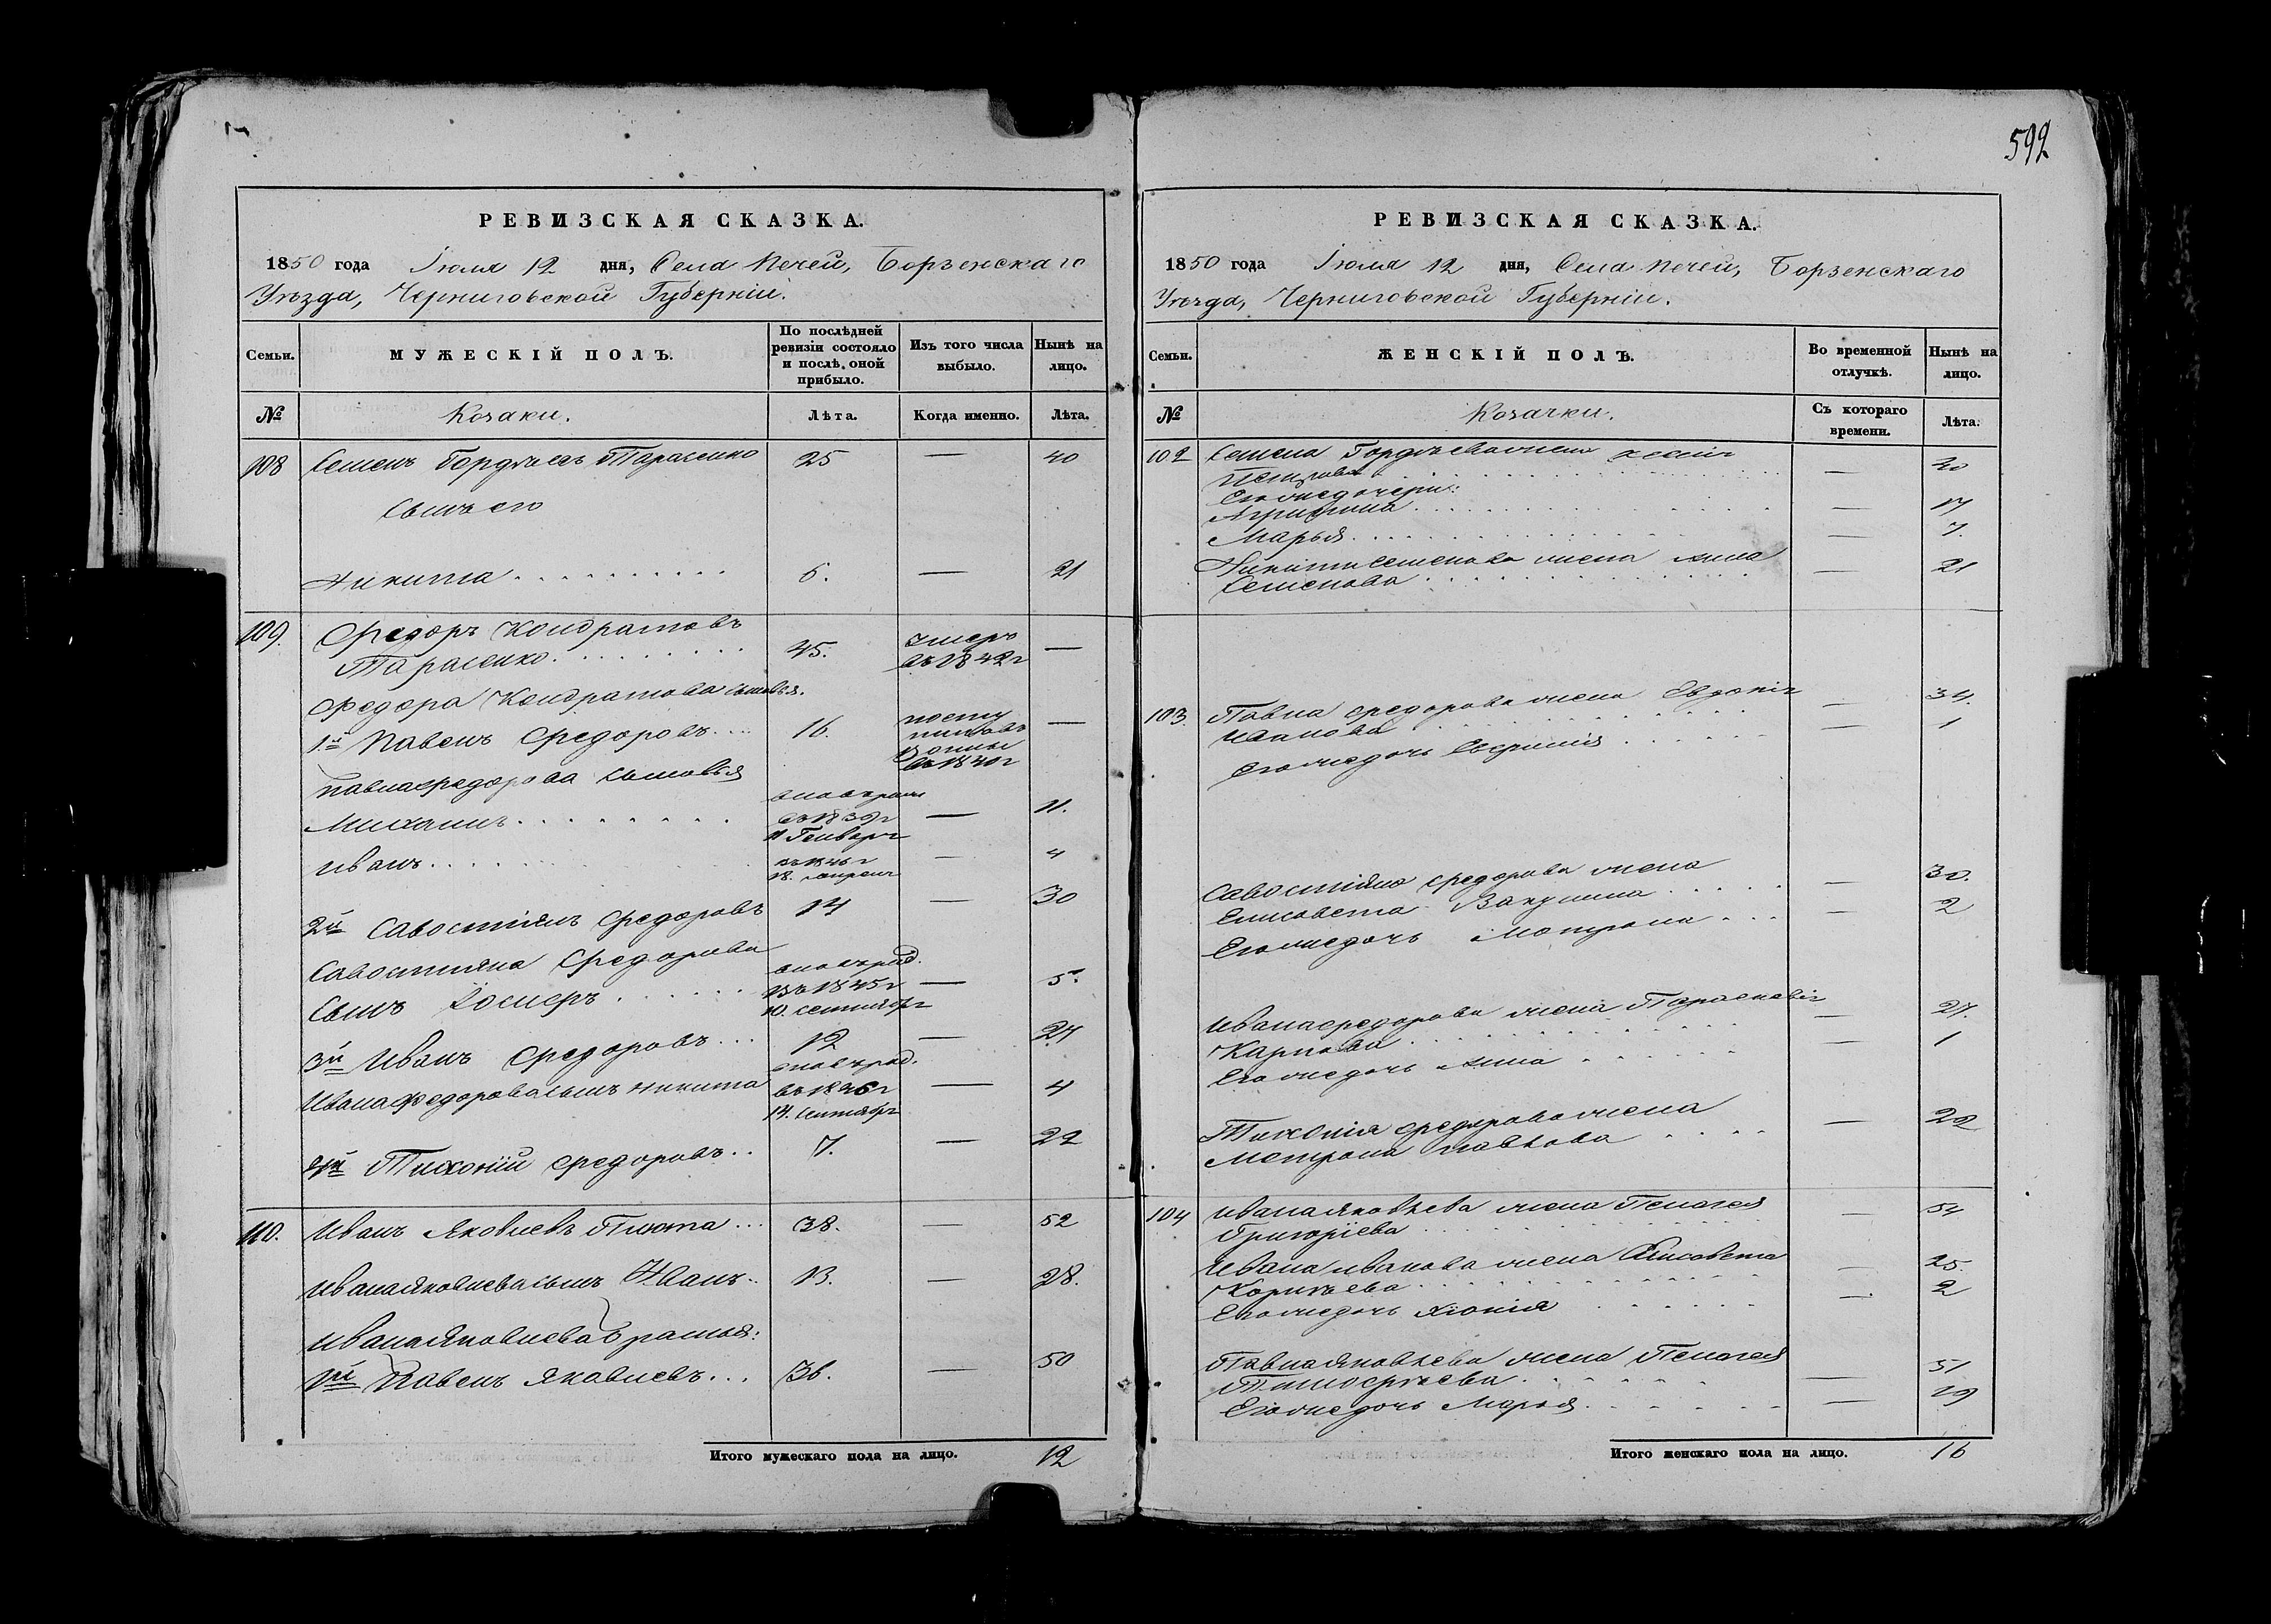 592
РЕВИЗСКАЯ СКАЗКА.
1850 года Іюля 12 дня, Села Печей, Борзенскаго
Уѣзда, Черниговской Губерніи.
Семьи.
МУЖЕСКІЙ ПОЛЪ.
По послѣдней ревизіи состояло и послѣ оной прибыло.
Изъ того числа выбыло.
Нынѣ на лицо.
№
Козаки.
Лѣта.
Когда именно.
Лѣта.
108 Семенъ Гордѣевъ Тарасенко 25 — 40
Сынъ его
Никита 6. — 21
109. Федоръ Кондратовъ
Тарасенко 45. умеръ въ 1842г —
Федора Кондратова сыновья.
1й Павелъ Федоровъ 16. въ 1840г —
Павла Федорова сыновья
Михаилъ въ 1839г 11 Генваря — 11.
Иванъ въ 1846г 18. Апреля — 4
2й Савостіянъ Федоровъ 14 — 30
Савостіяна Федорова
сынъ въ 1845г 10. Сентября — 5.
3й Иванъ Федоровъ 12 — 27
Ивана Федорова сынъ Никита въ 1846г 14. Сентября — 4
4й Тихоній Федоровъ 7. — 22
110. Иванъ Яковлевъ Плюта 38. — 52
Ивана Яковлева сынъ Иванъ 13. — 28.
Ивана Яковлева братья:
1й Павелъ Яковлевъ 36. — 50
Итого мужескаго пола на лицо. 12
РЕВИЗСКАЯ СКАЗКА.
1850 года Іюля 12 дня, Села Печей, Борзенскаго
Уѣзда, Черниговской Губерніи.
Семьи.
ЖЕНСКІЙ ПОЛЪ.
Во временной отлучкѣ.
Нынѣ на лицо.
№
Козачки.
Съ котораго времени.
Лѣта.
102 Семена Гордѣева жена
Петрова — 40
Его же дочери:
Агрипина — 17
Марья — 7.
Никиты Семенова жена Анна
Семенова — 21
103. Павла Федорова жена Евдокія
Иванова — 34.
Его же дочь — 1
Савостіяна Федорова жена
Елисавета — 30.
Его же дочь Мотрона — 2
Ивана Федорова жена Парасковія
Карпова — 27.
Его же дочь Анна — 1
Тихонія Федорова жена
Мотрона Павлова — 22
104 Ивана Яковлева жена Пелагея
Григоріева — 54
Ивана Иванова жена Елисавета
Корнѣева — 25.
Его же дочь Хіонія — 2
Павла Яковлева жена Пелагея
Тимофѣева — 51
Его же дочь Марья — 19
Итого женскаго пола на лицо. 16